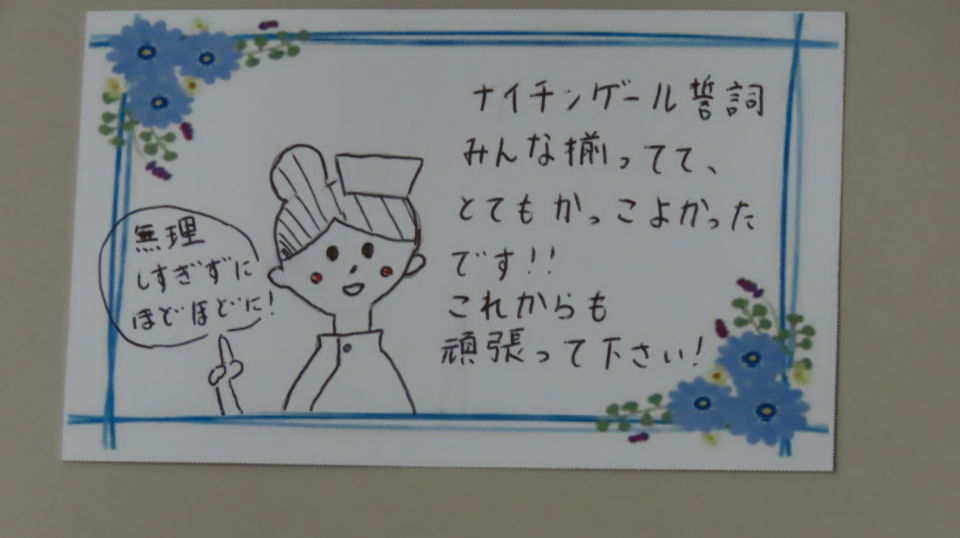 ナイチンゲール誓詞
みんな揃ってて、
とてもかっこよかった
です!!
これからも
頑張って下さい!
無理
しすぎずに
ほどほどに!